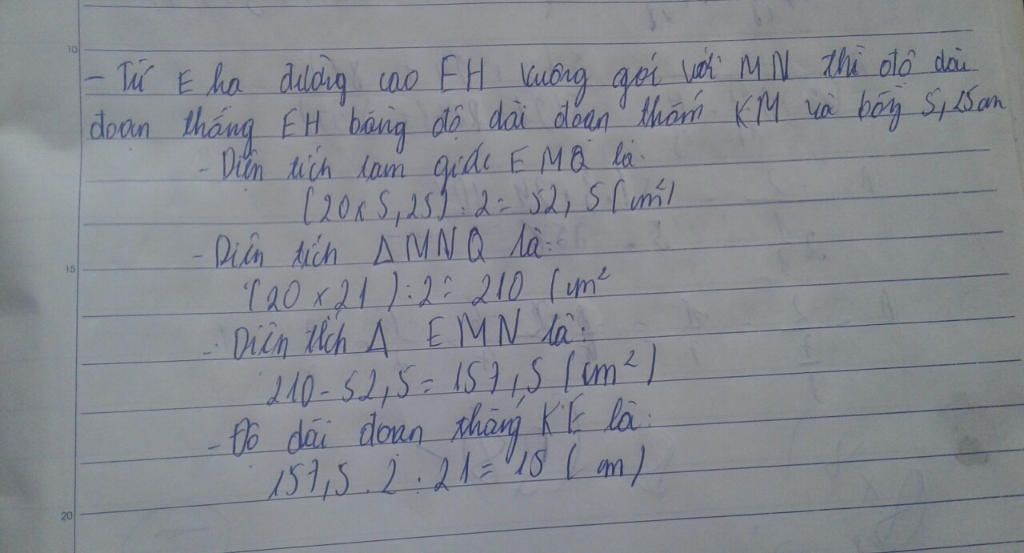 10
- Từ E hạ đường cao EH vuông gói với MN thì độ dài
đoạn thẳng EH bằng độ dài đoạn thẳm KM và bằng 5,25cm
- Diện tích tam giác EMQ là:
(20 x 5,25) : 2 = 52,5 (cm²)
- Diện tích Δ MNQ là:
15
(20 x 21) : 2 = 210 (cm²
- Diện tích Δ EMN là:
210 - 52,5 = 157,5 (cm²)
- Độ dài đoạn thẳng KE là:
157,5 . 2 : 21 = 15 (cm)
20